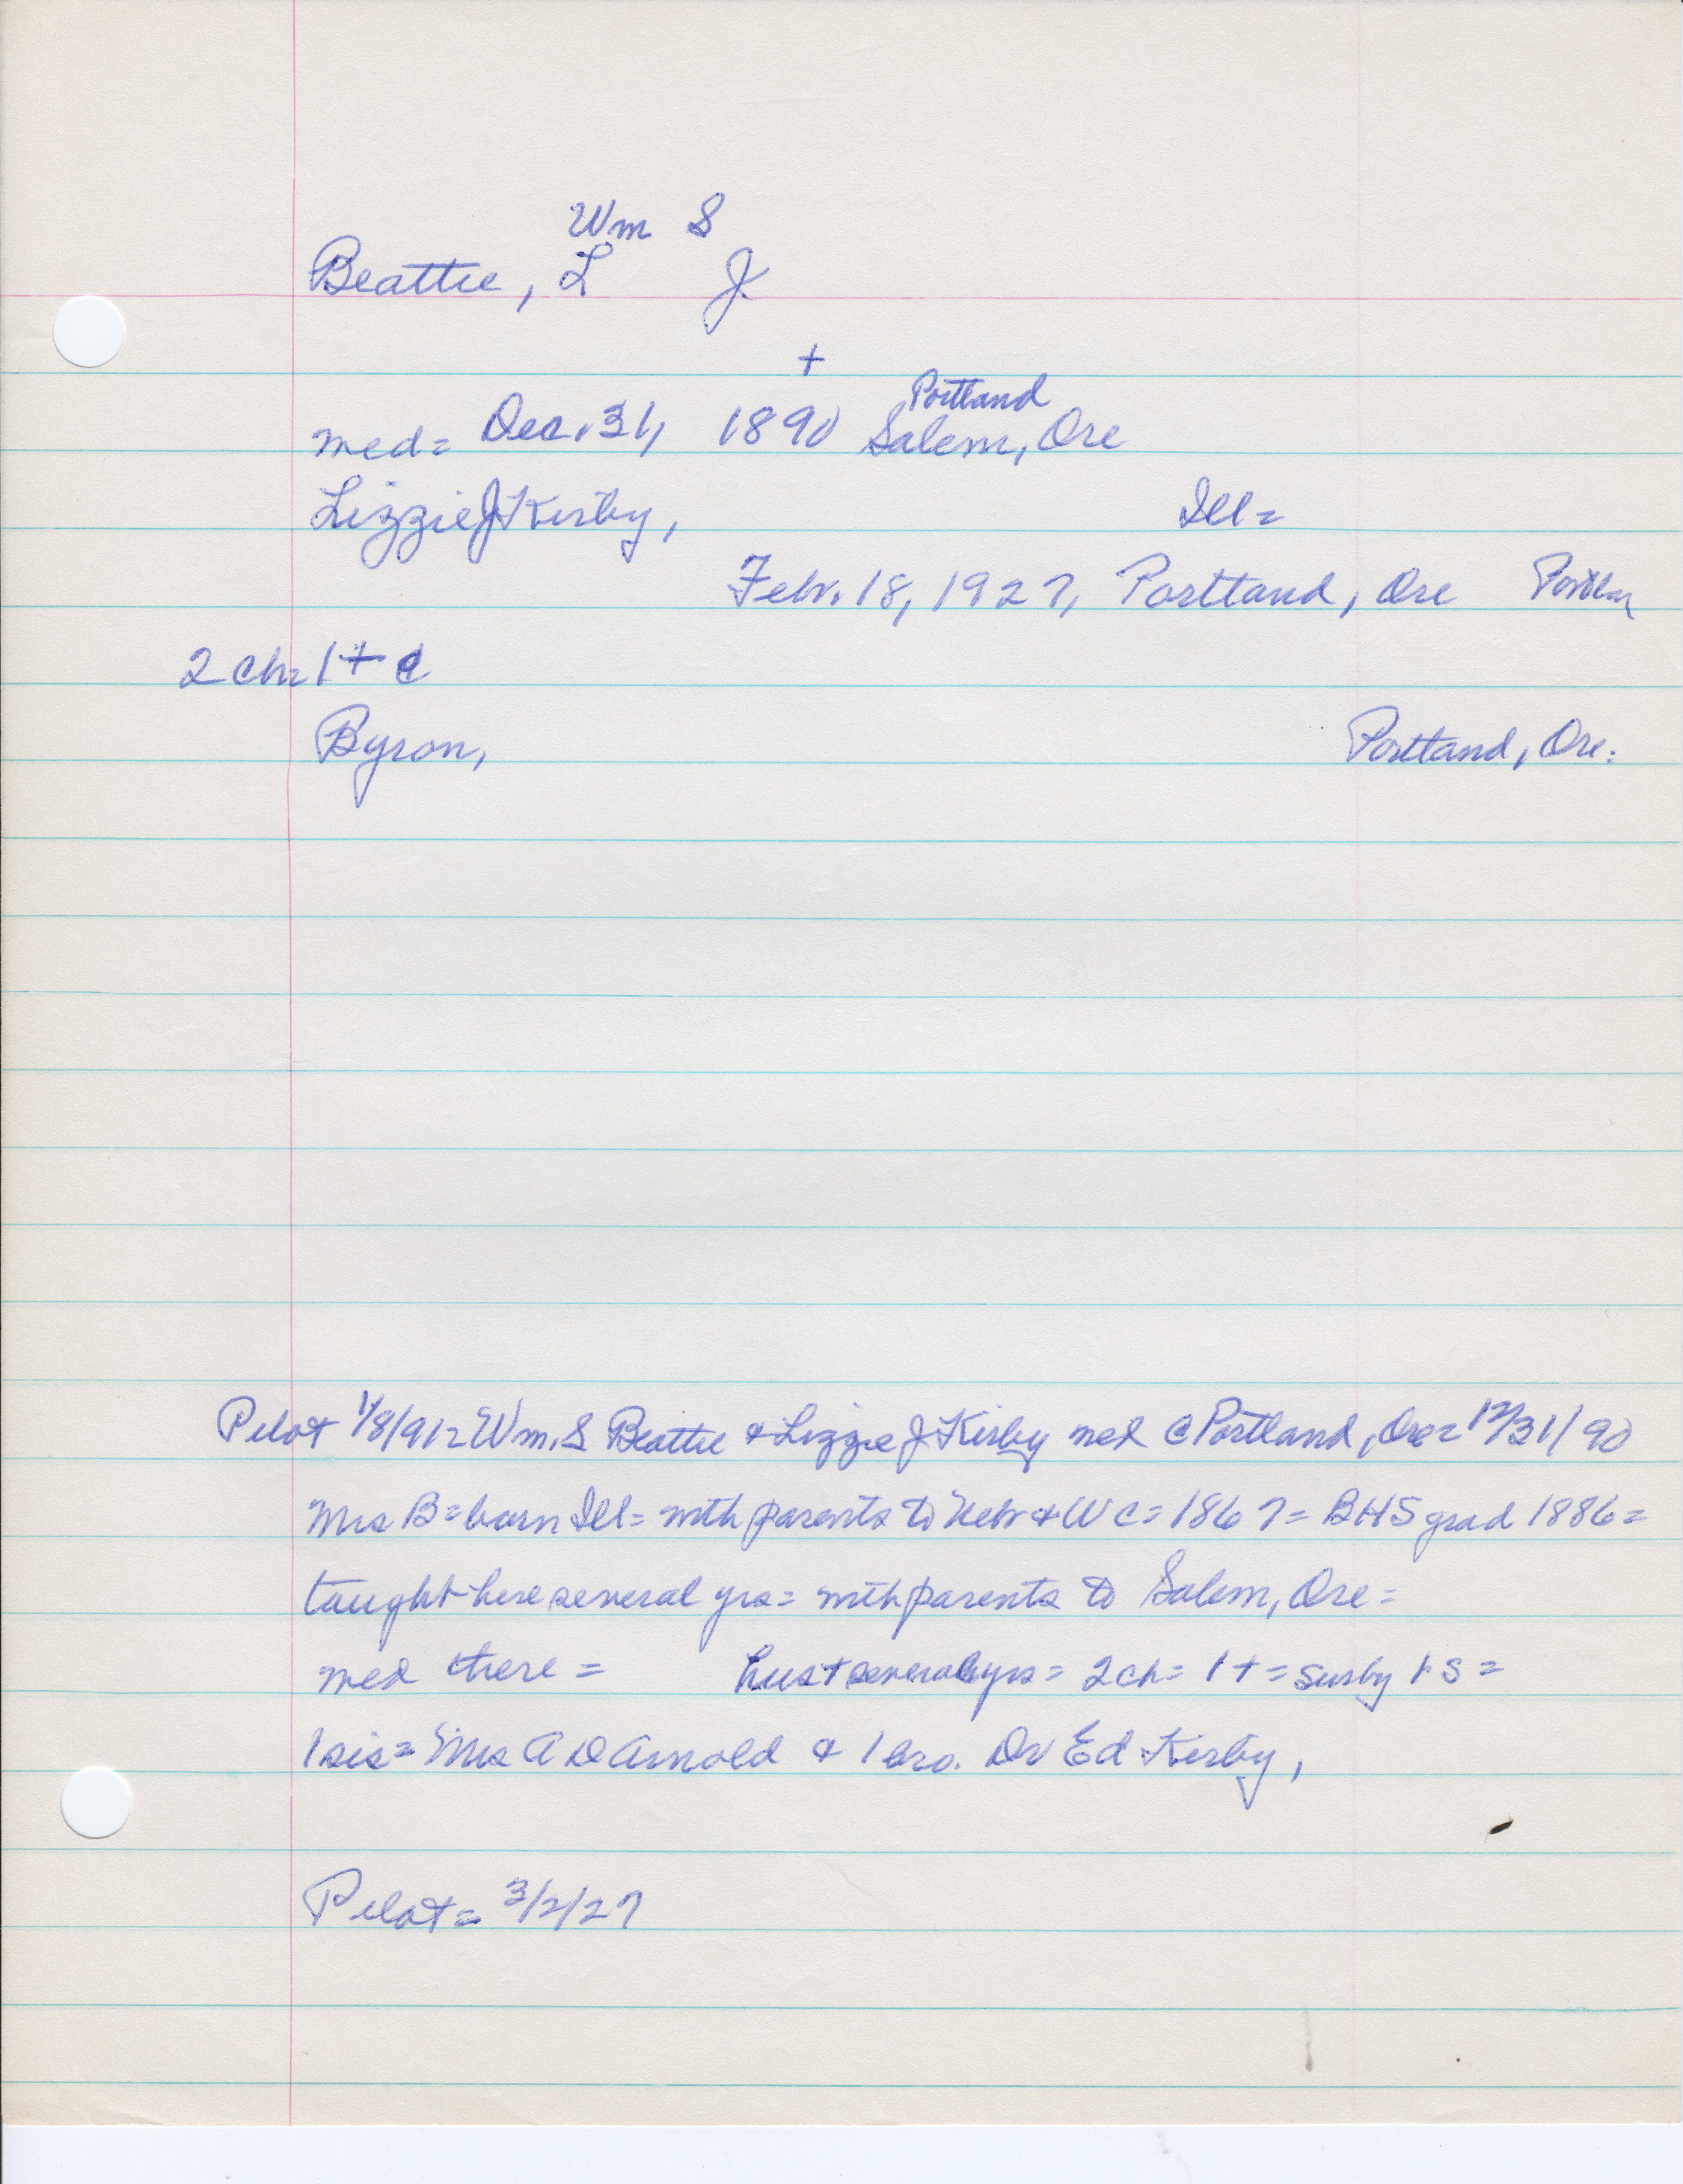 Wm S
Beattie, L J.
+
Portland
med= Dec. 31, 1890 Salem, Ore
Lizzie J Kirby, Ill=
Feb. 18, 1927, Portland, Ore
2 ch= 1 + c
Byron, Portland, Ore.
Pilot 1/8/91= Wm. S Beattie & Lizzie J Kirby med @ Portland, Ore= 12/31/90
Mrs B= born Ill= with parents to Nebr & W C= 1867= BHS grad 1886=
taught here several yrs= with parents to Salem, Ore=
med there = hus + several yrs= 2 ch= 1 += sur by 1 s =
1 sis= Mrs A D Arnold & 1 bro. Dr Ed Kirby,
Pilot= 3/2/27